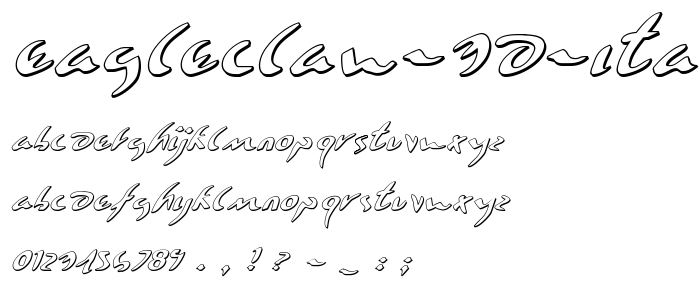 eagleclan-3D-ita
abcDefghijklmnopqrstuvwxyz
abcDefghijklmnopqrstuvwxyz
0123456789 . , ! ? - _ : ;